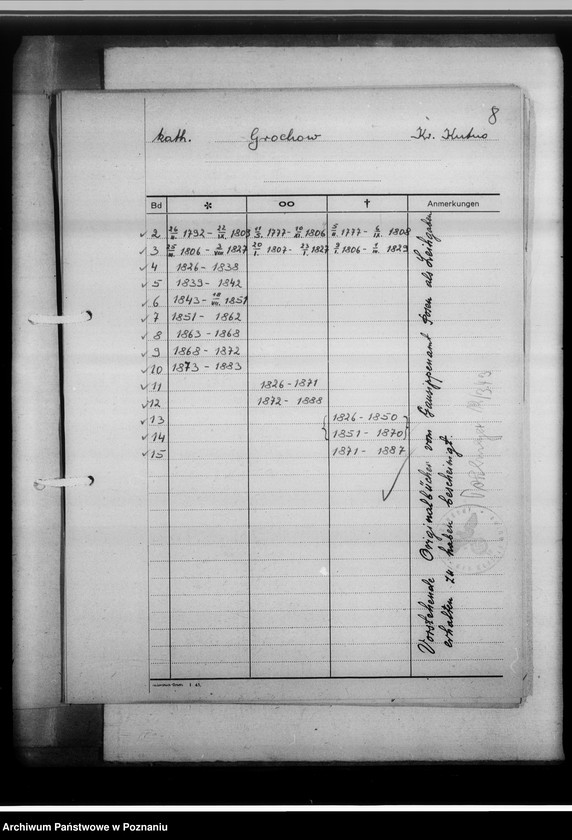 8
kath. Grochow Kr. Kutno
Bd * oo † Anmerkungen
2 26/II. 1792 - 22/IX. 1808 11/5. 1777 - 10/XI. 1806 5/II. 1777 - 6/IX. 1808
3 1806 - 3/VIII 1827 20/I. 1807 - 27/I. 1827 3/I. 1806 - 1829
4 1826 - 1838
5 1839 - 1842
6 1843 - 18/VII. 1851
7 1851 - 1862
8 1863 - 1868
9 1868 - 1872
10 1873 - 1883
11 1826 - 1871
12 1872 - 1888
13 1826 - 1850
14 1851 - 1870
15 1871 - 1887
Vorstehende Originalbücher vom Gausippenamt Posen als Leihgaben
erhalten zu haben bescheinigt.
Archiwum Państwowe w Poznaniu